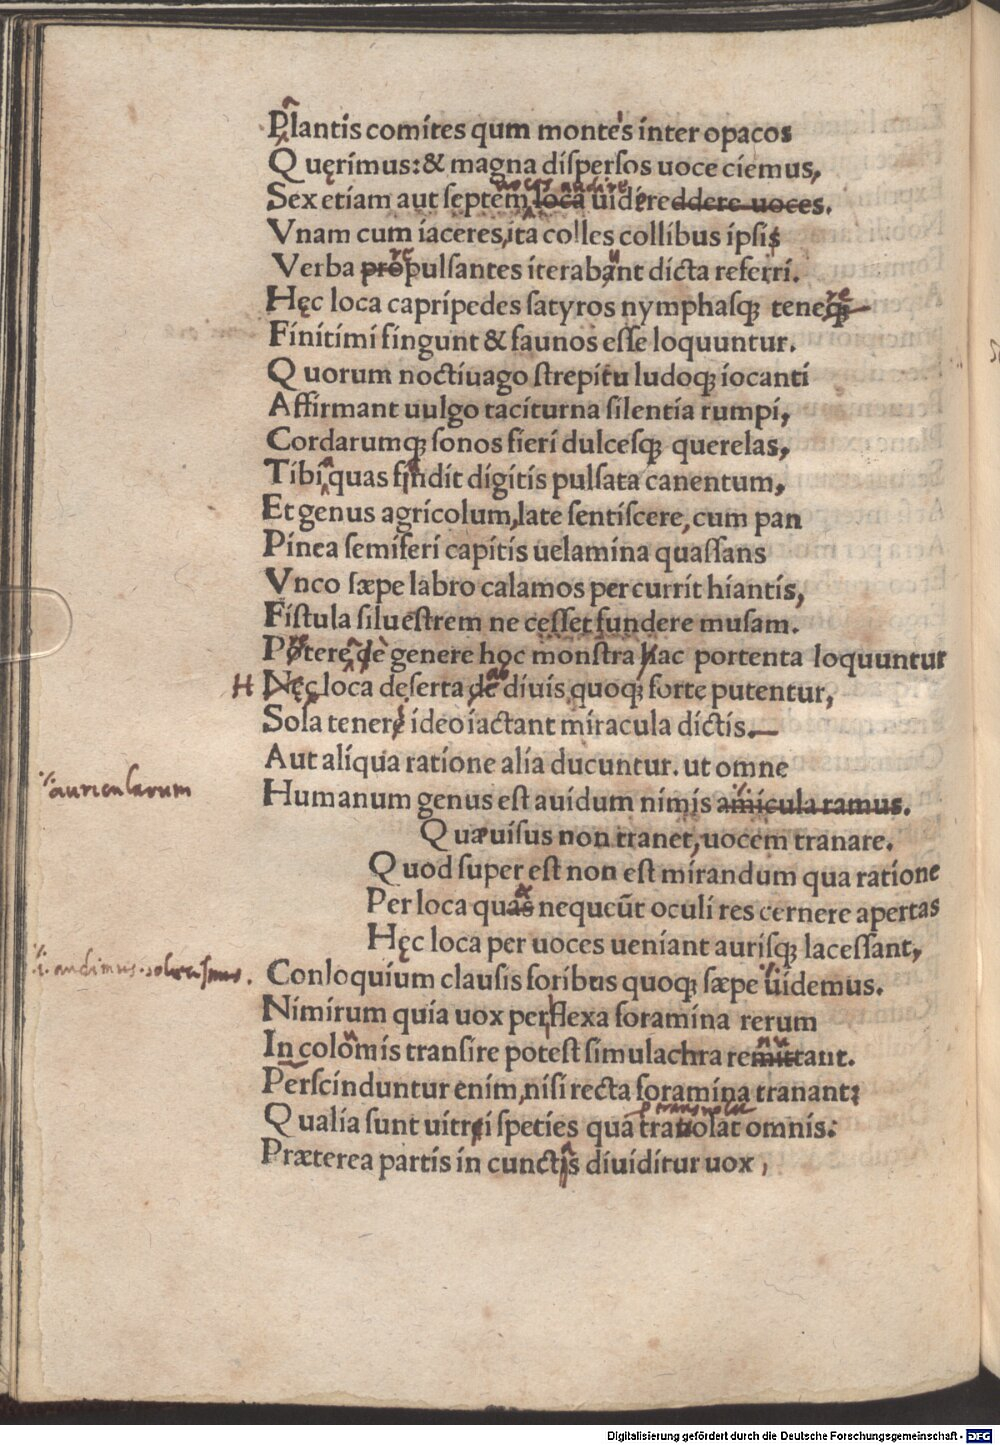 Plantis comites qum montes inter opacos
Quęrimus: & magna dispersos uoce ciemus,
uoces audire
Sex etiam aut septem loca uidereddere uoces.
Vnam cum iaceres, ita colles collibus ipsis
re u
Verba propulsantes iterabant dicta referri.
re
Hęc loca capripedes satyros nymphasq; teneq;
Finitimi fingunt & faunos esse loquuntur.
Quorum noctiuago strepitu ludoq; iocanti
Affirmant uulgo taciturna silentia rumpi,
Cordarumq; sonos fieri dulcesq; querelas,
a
Tibi quas findit digitis pulsata canentum,
Et genus agricolum, late sentiscere, cum pan
Pinea semiferi capitis uelamina quassans
Vnco sæpe labro calamos percurrit hiantis,
Fistula siluestrem ne cesset fundere musam.
Potere de genere hoc monstra hac portenta loquuntur
ab
H Nęc loca deserta de diuis quoq; forte putentur,
Sola tenere ideo iactant miracula dictis.
Aut aliqua ratione alia ducuntur. ut omne
auricularum
Humanum genus est auidum nimis amicula ramus.
Quæuisus non tranet, uocem tranare.
Quod super est non est mirandum qua ratione
Per loca quas nequeūt oculi res cernere apertas
Hęc loca per uoces ueniant aurisq; lacessant,
Conloquium clausis foribus quoq; sæpe uidemus.
Nimirum quia uox perflexa foramina rerum
In colomis transire potest simulachra remittant.
Perscinduntur enim, nisi recta foramina tranant:
Qualia sunt uitrei speties qua trauolat omnis:
Præterea partis in cunctis diuiditur uox,
Digitalisierung gefördert durch die Deutsche Forschungsgemeinschaft - DFG